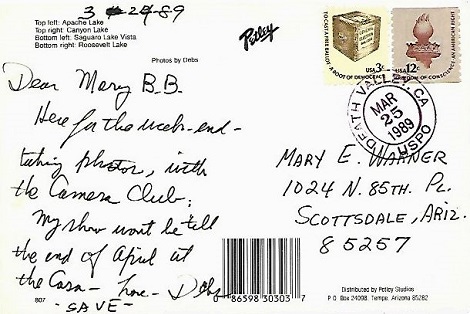 3-24-89
Top left: Apache Lake
Top right: Canyon Lake
Bottom left: Saguaro Lake Vista
Bottom right: Roosevelt Lake
Photos by Debs
Petley
TO CAST A FREE BALLOT
A ROOT OF DEMOCRACY
USA 3c
USA 12c
FREEDOM OF CONSCIENCE AN AMERICAN RIGHT
DEATH VALLEY, CA
MAR
25
1989
USPO
Dear Mary B.B.
Here for the week-end-
taking photos, with
the Camera Club.
My show wont be till
the end of April at
the Casa - love - Debs
- SAVE -
MARY E. WARNER
1024 N. 85TH. PL.
SCOTTSDALE, ARIZ.
85257
807
0 86598 30303 7
Distributed by Petley Studios
P O Box 24008. Tempe. Arizona 85282